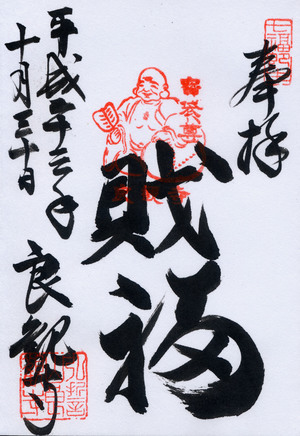 奉拝
財福
平成二十三年
十月三十日
良観寺